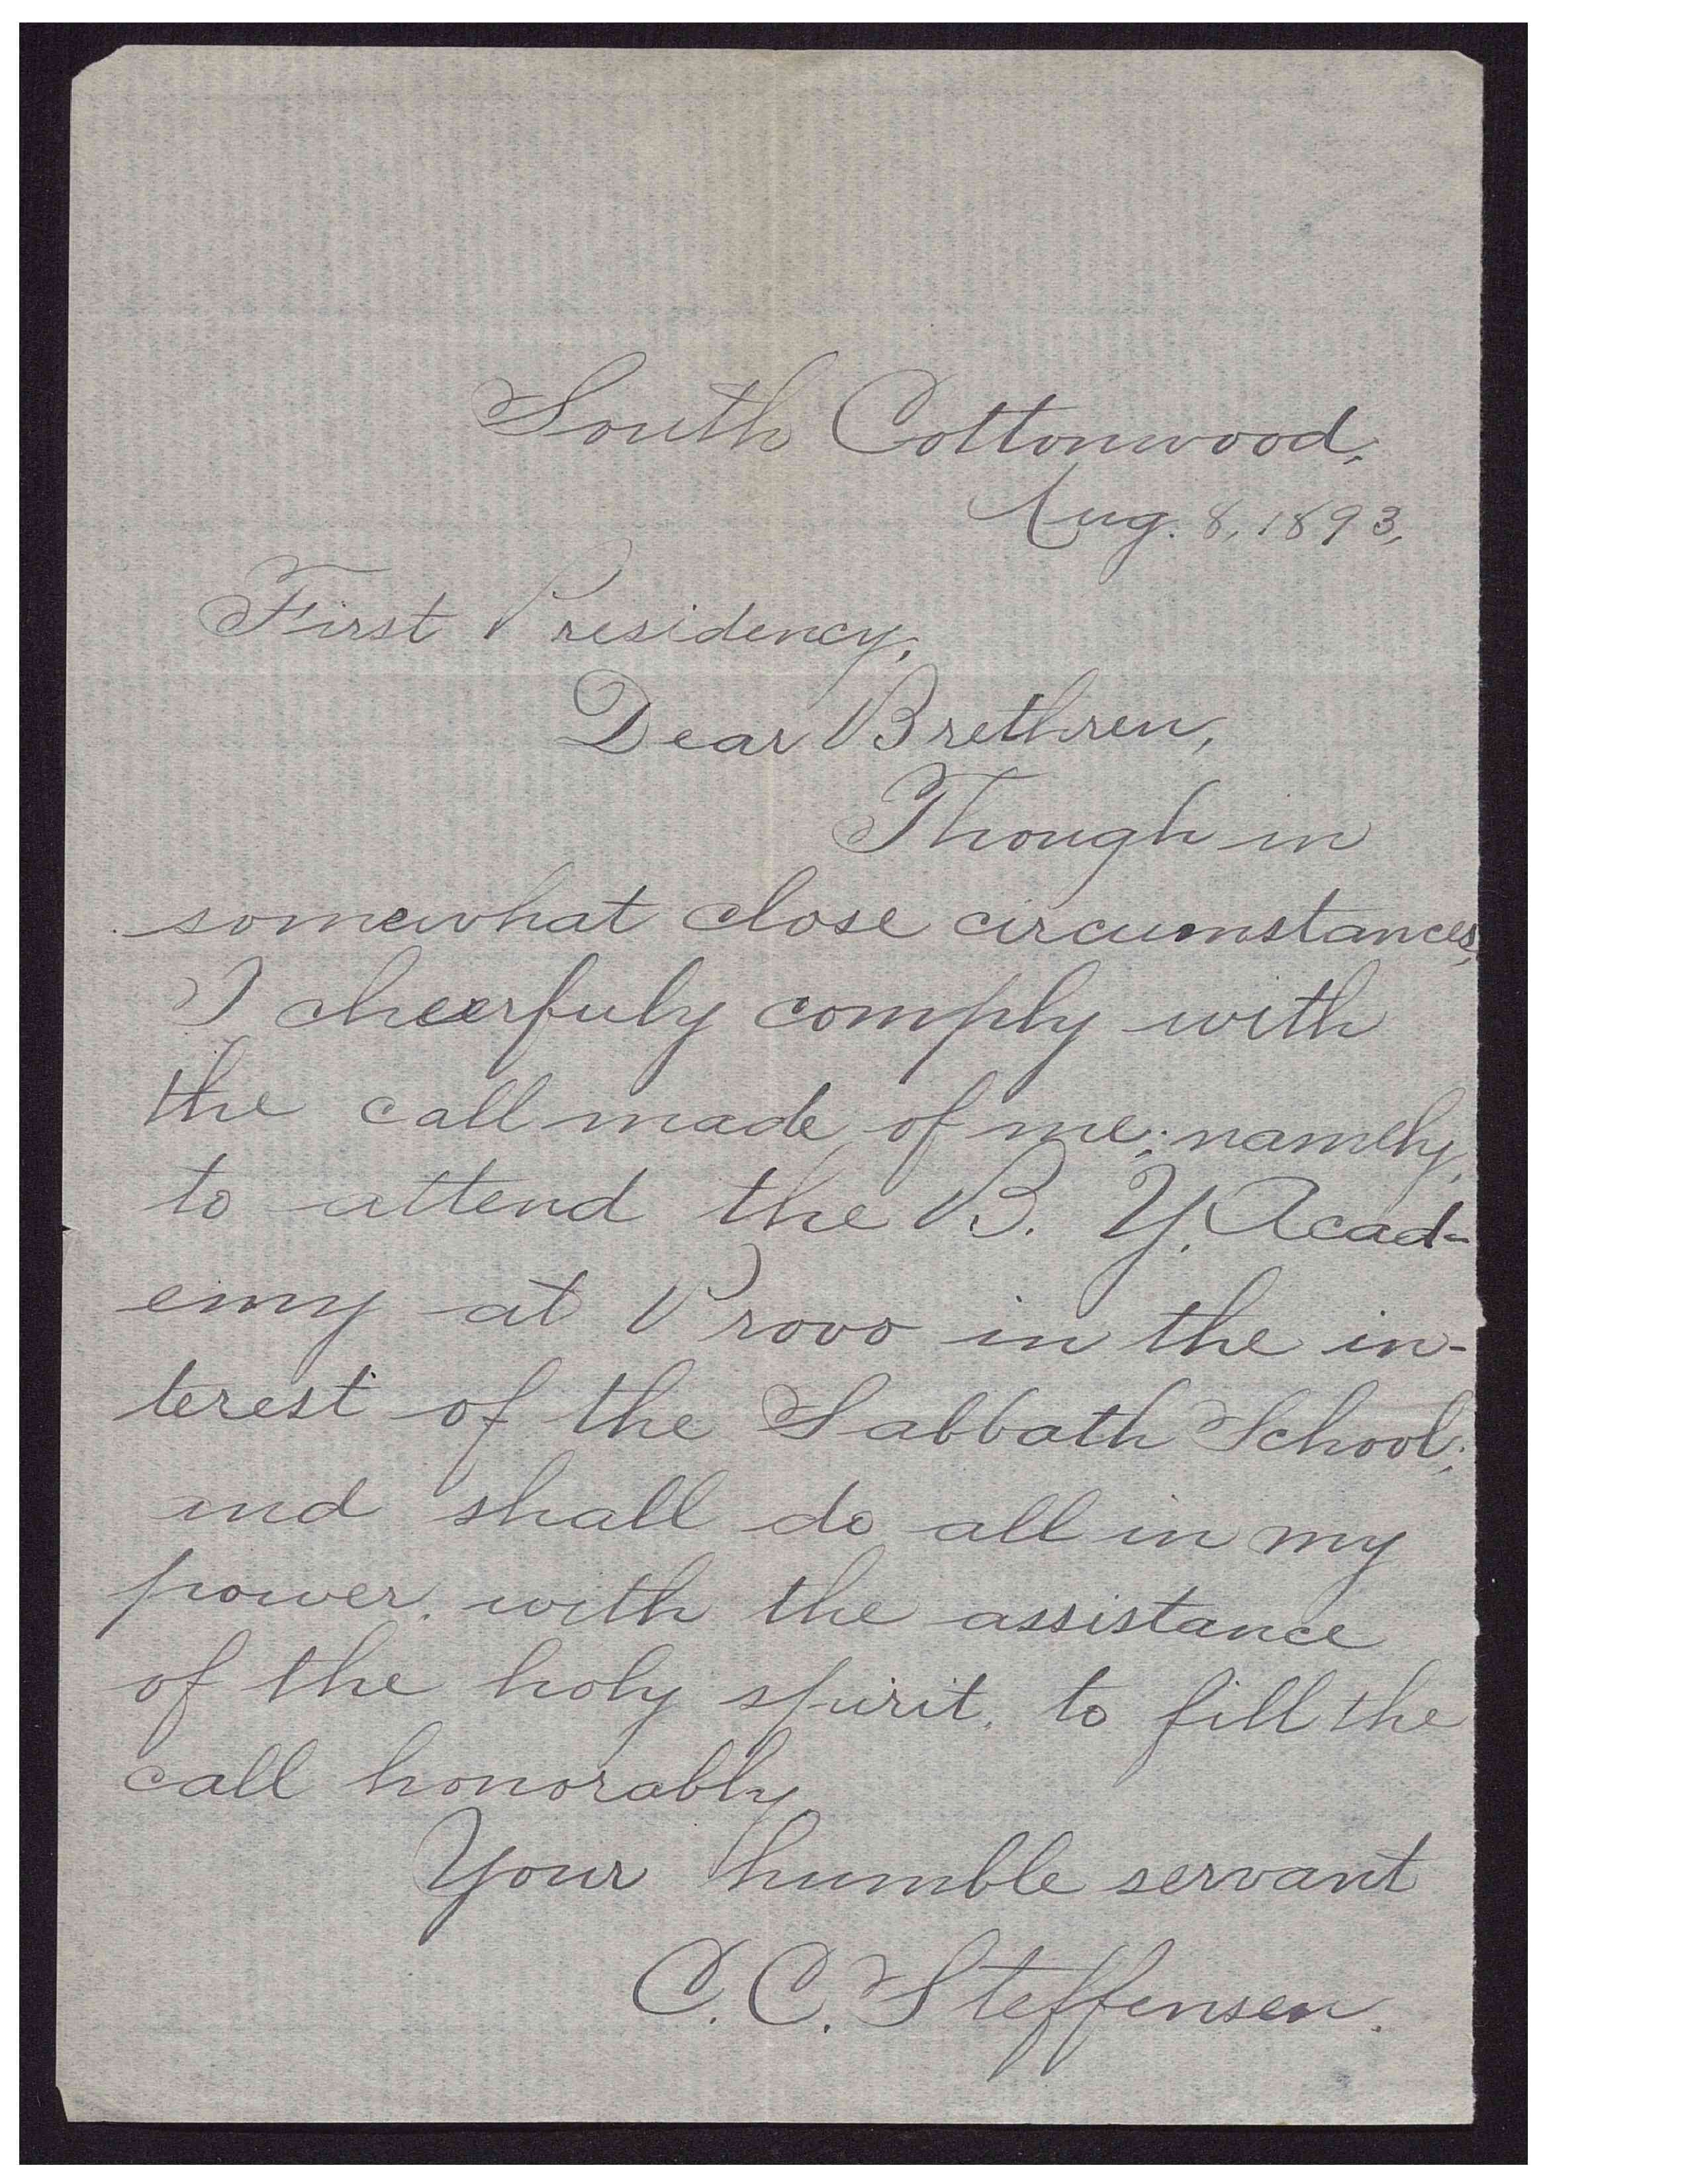 South Cottonwood,
Aug. 8, 1893,
First Presidency,
Dear Brethren,
Though in
somewhat close circumstances,
I cheerfuly comply with
the call made of me; namely,
to attend the B. Y. Acad-
emy at Provo in the in-
terest of the Sabbath School;
and shall do all in my
power, with the assistance
of the holy spirit, to fill the
call honorably
Your humble servant
C. C. Steffensen.